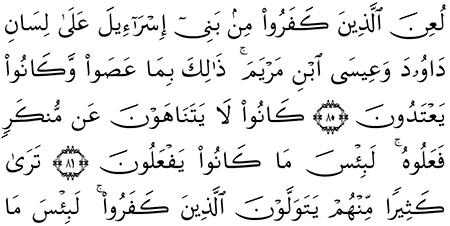 لُعِنَ ٱلَّذِينَ كَفَرُوا۟ مِنۢ بَنِىٓ إِسْرَٰٓءِيلَ عَلَىٰ لِسَانِ
دَاوُۥدَ وَعِيسَى ٱبْنِ مَرْيَمَ ۚ ذَٰلِكَ بِمَا عَصَوا۟ وَّكَانُوا۟
يَعْتَدُونَ ﴿٨٠﴾ كَانُوا۟ لَا يَتَنَاهَوْنَ عَن مُّنكَرٍ
فَعَلُوهُ ۚ لَبِئْسَ مَا كَانُوا۟ يَفْعَلُونَ ﴿٨١﴾ تَرَىٰ
كَثِيرًا مِّنْهُمْ يَتَوَلَّوْنَ ٱلَّذِينَ كَفَرُوا۟ ۚ لَبِئْسَ مَا